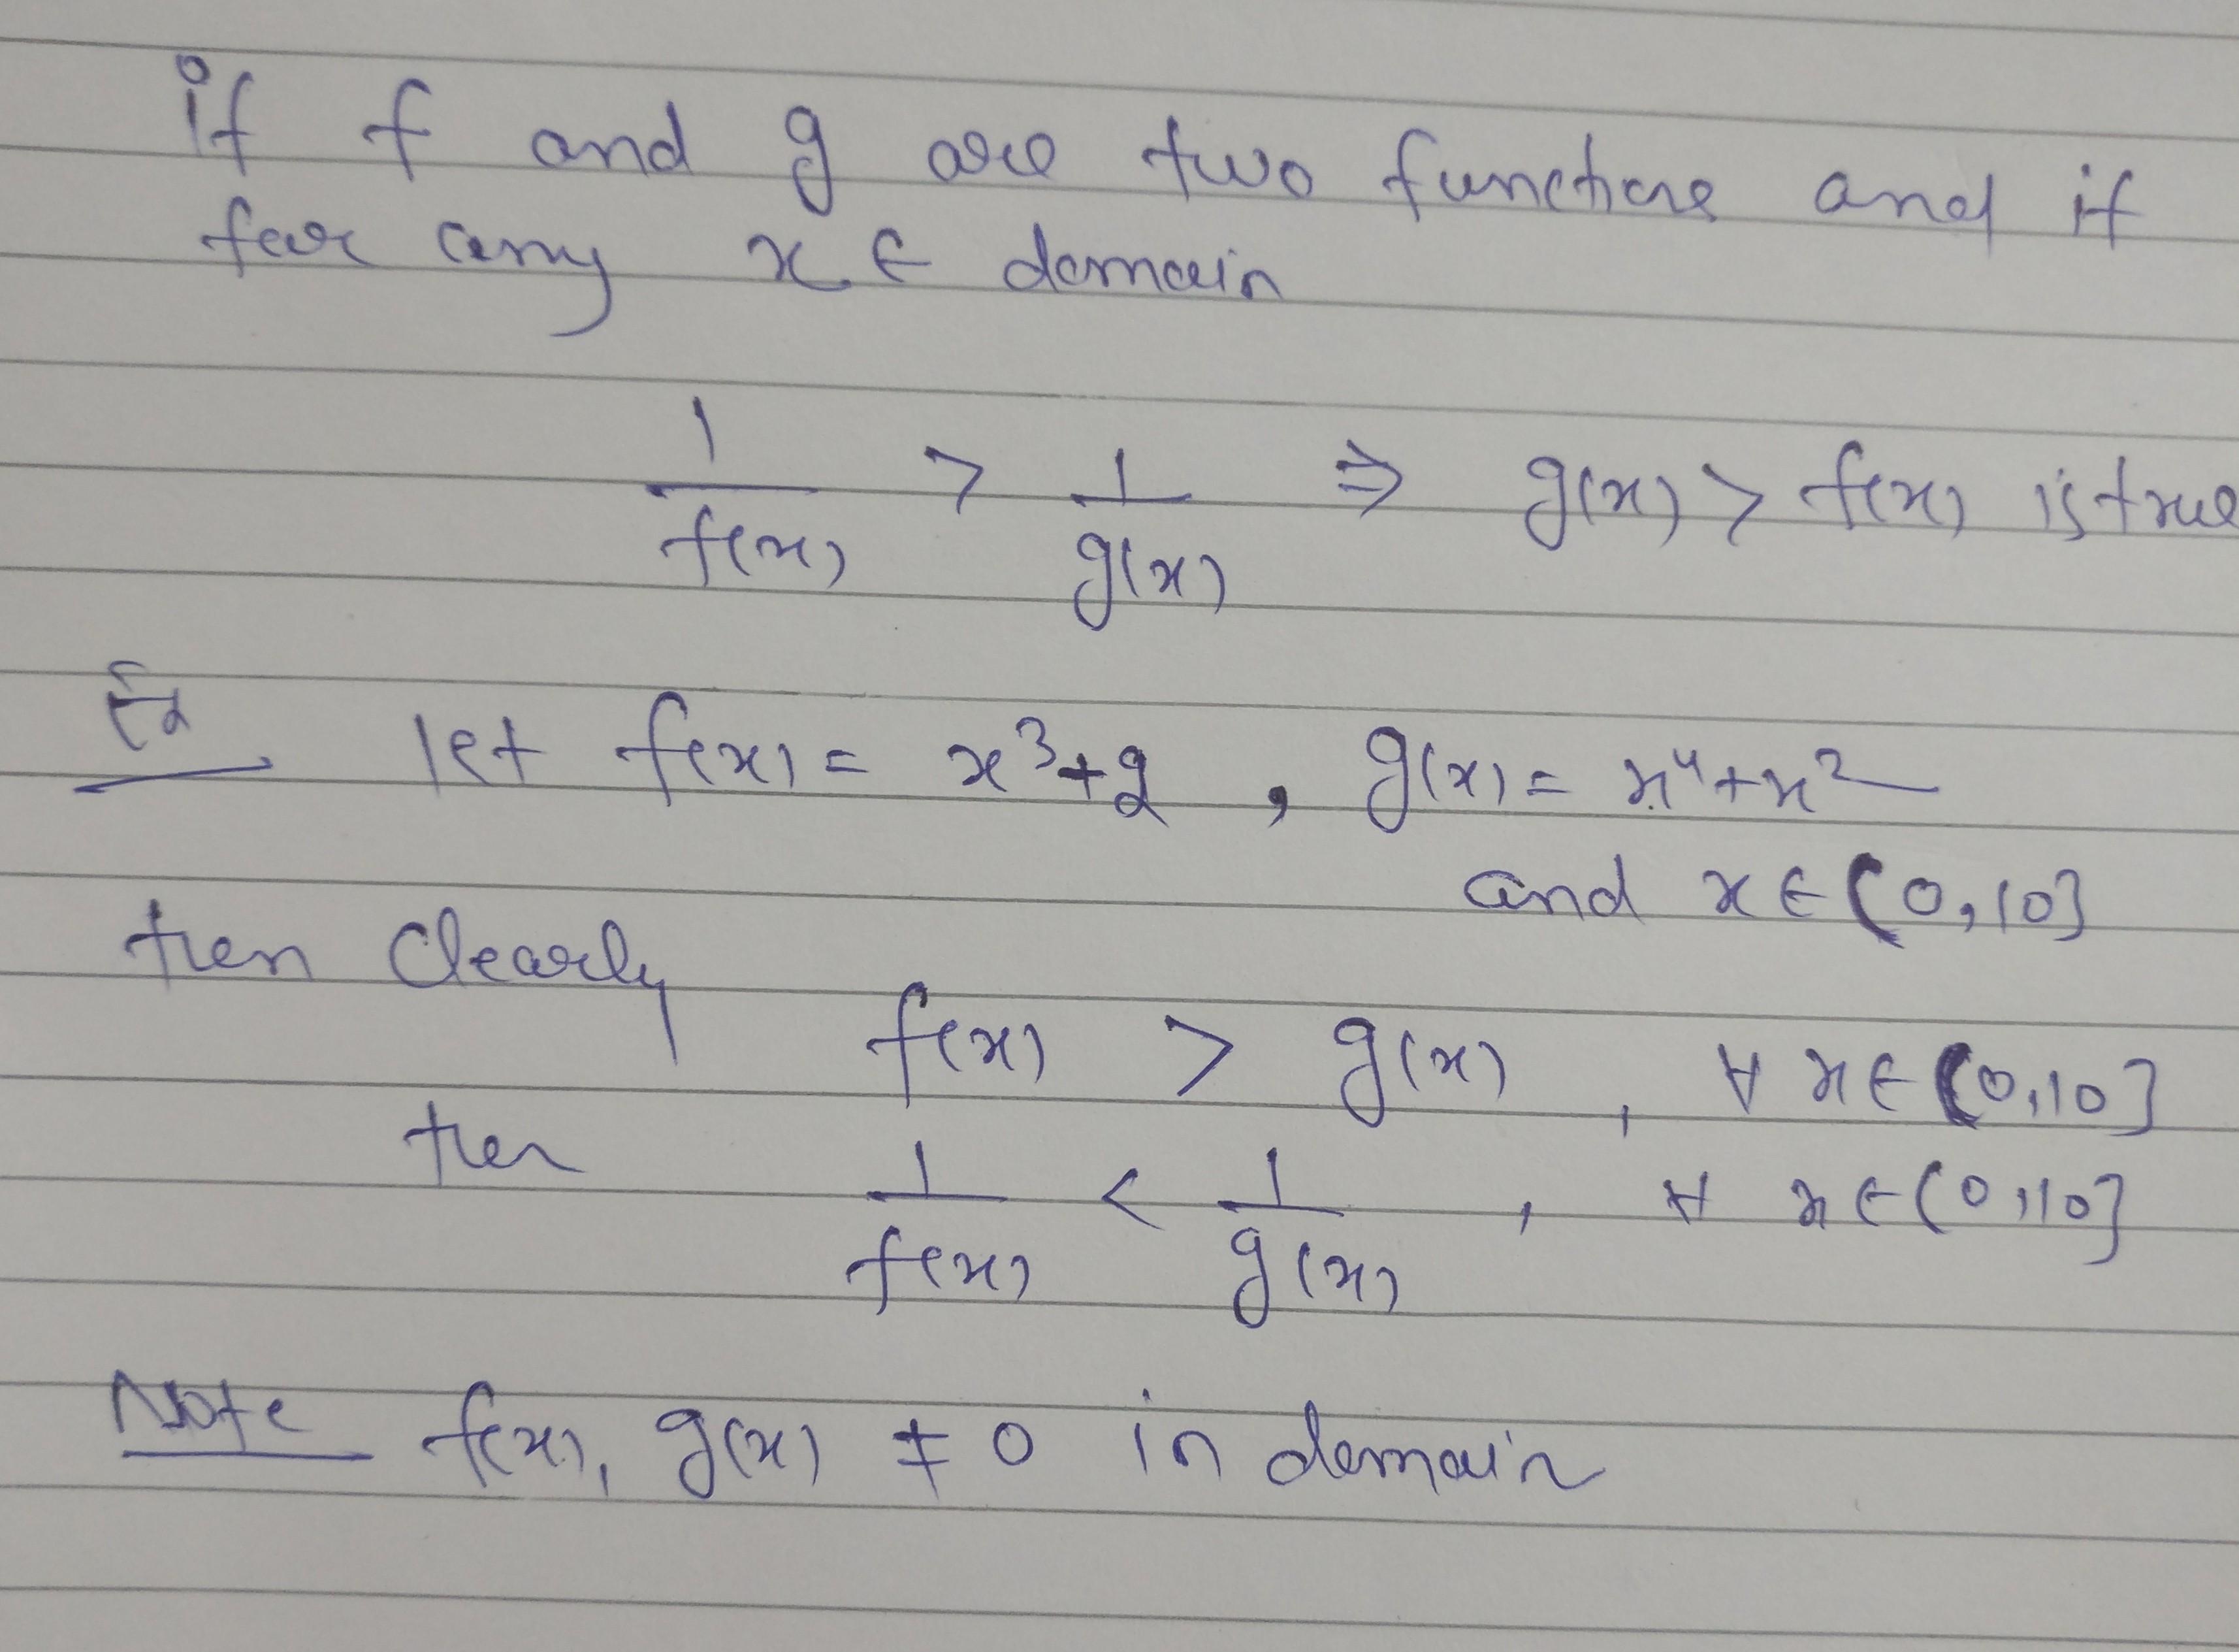 if f and g are two functions and if
for any x ∈ domain
1/f(x) > 1/g(x) ⇒ g(x) > f(x) is true
Ex let f(x) = x³+2 , g(x) = x⁴+x²
and x ∈ (0,10]
then clearly
f(x) > g(x) , ∀ x ∈ (0,10]
then 1/f(x) < 1/g(x) , ∀ x ∈ (0,10]
Note f(x), g(x) ≠ 0 in domain